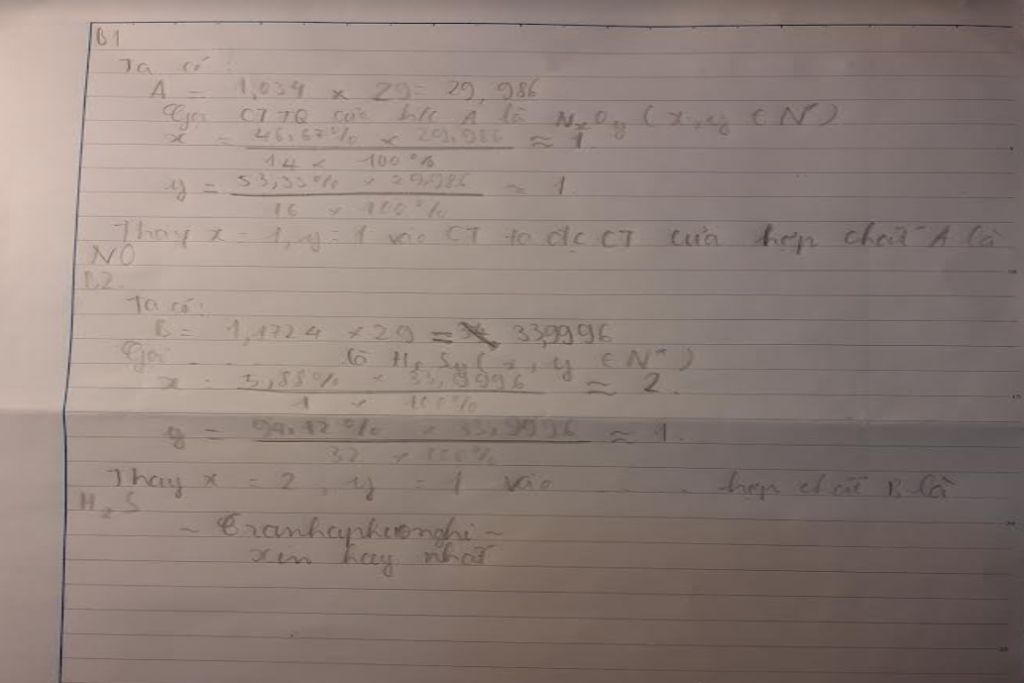 B1
Ta có:
A = 1,034 × 29 = 29,986
Gọi CTTQ của h/c A là NxOy (x, y ∈ N*)
x = 46,67% × 29,986 / 14 × 100% ≈ 1
y = 53,33% × 29,986 / 16 × 100% ≈ 1
Thay x = 1, y = 1 vào CT ta đc CT của hợp chất A là
NO
B2.
Ta có:
B = 1,1724 × 29 = 33,9996
Gọi ........ là HxSy (x, y ∈ N*)
x = 5,88% × 33,9996 / 1 × 100% ≈ 2.
y = 94,12% × 33,9996 / 32 × 100% ≈ 1.
Thay x = 2, y = 1 vào ........ hợp chất B là
H2S
~ Tranhaphuonghi ~
xin hay nhất